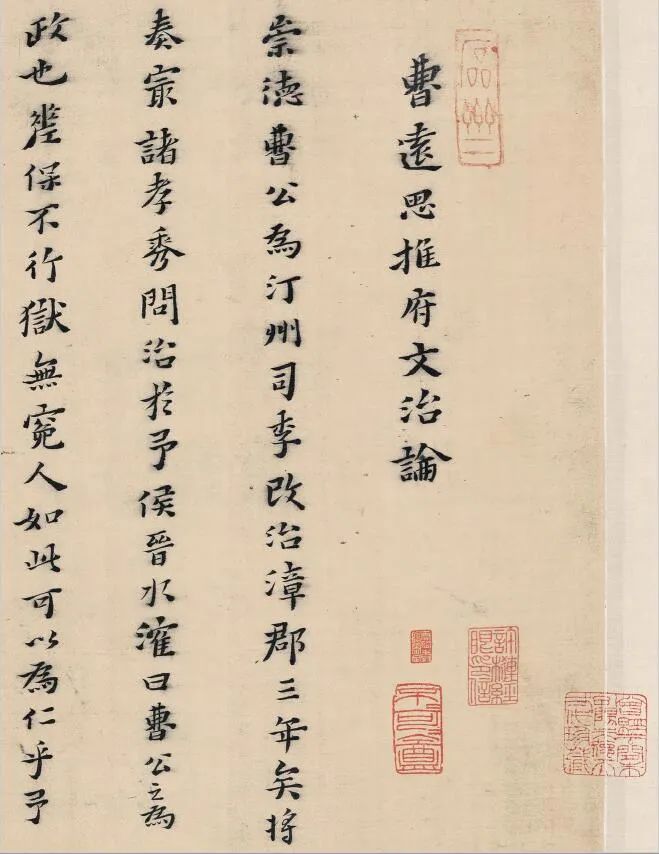 曹遠思推府文治論
崇德曹公為汀州司李改治漳郡三年矣將
奏㝡諸孝秀問治於予侯晉水曰曹公之為
政也保不行獄無寃人如此可以為仁乎予